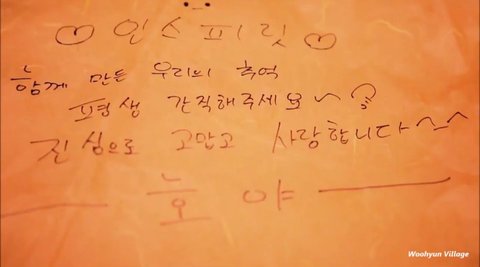 ♡ 인스피릿 ♡
함께 만든 우리의 추억
평생 간직해주세요~
진심으로 고맙고 사랑합니다^^
호야
Woohyun Village